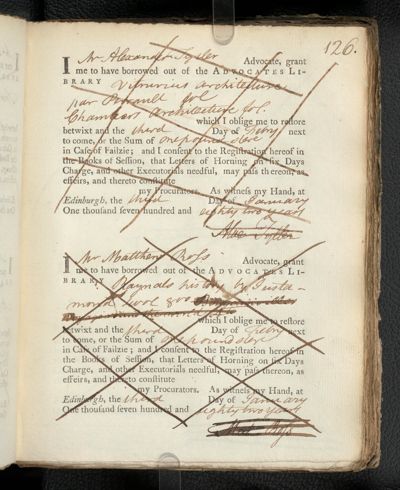 126.
I Mr Alexander Tytler Advocate, grant
me to have borrowed out of the ADVOCATES LI-
BRARY Vitruvius Architecture
par Perrault fol.
Chambers Architecture fol.
which I oblige me to reſtore
betwixt and the third Day of Febry next
to come, or the Sum of one pound ſterl
in Caſe of Failzie; and I conſent to the Regiſtration hereof in
the Books of Seſſion, that Letters of Horning on ſix Days
Charge, and other Executorials needful, may paſs thereon, as
effeirs, and thereto conſtitute
my Procurators. As witneſs my Hand, at
Edinburgh, the third Day of January
One thouſand ſeven hundred and eighty two years
Alex Tytler
I Mr Matthew Roſs Advocate, grant
me to have borrowed out of the ADVOCATES LI-
BRARY Raynals history by Justa-
mond vol 8vo
which I oblige me to reſtore
betwixt and the third Day of Febry next
to come, or the Sum of pound ſterl
in Caſe of Failzie; and I conſent to the Regiſtration hereof in
the Books of Seſſion, that Letters of Horning on ſix Days
Charge, and other Executorials needful, may paſs thereon, as
effeirs, and thereto conſtitute
my Procurators. As witneſs my Hand, at
Edinburgh, the third Day of January
One thouſand ſeven hundred and eighty two years
Mat Roſs